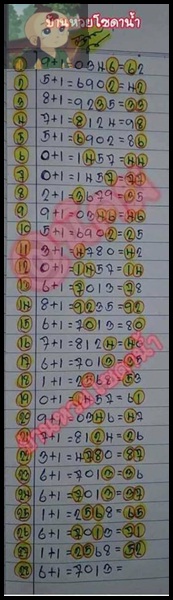 บ้านหวยโซดาน้ำ
1 9+1=0346=62
2 5+1=6902=42
3 8+1=9235=33
4 7+1=8124=98
5 5+1=6902=86
6 0+1=1457=44
7 0+1=1457=77
8 2+1=3679=35
9 9+1=0346=46
10 5+1=6902=25
11 3+1=4780=42
12 0+1=1457=14
13 6+1=7013=78
14 8+1=9235=92
15 6+1=7013=80
16 7+1=8124=46
17 6+1=7013=95
18 1+1=2568=53
19 0+1=1457=61
20 9+1=0346=47
21 7+1=8124=26
22 3+1=4780=87
23 6+1=7013=36
24 6+1=7013=37
25 1+1=2568=65
26 6+1=7013=31
27 1+1=2568=52
28 6+1=7013=
บ้านหวยโซดาน้ำ